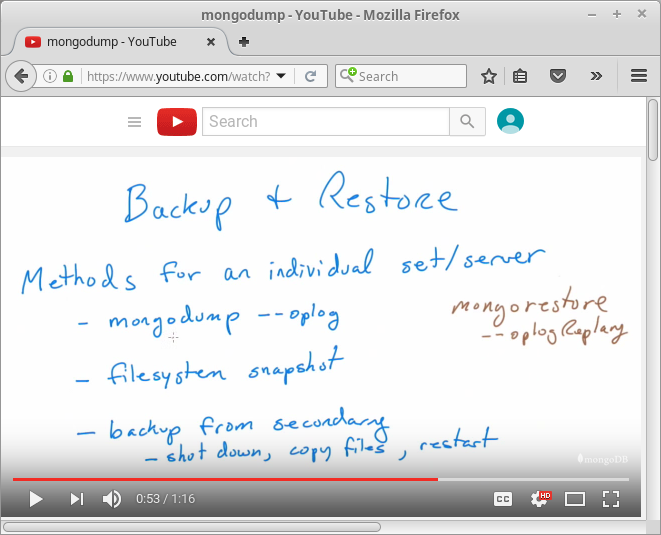 mongodump - YouTube - Mozilla Firefox
mongodump - YouTube
https://www.youtube.com/watch?
Search
Search
Backup & Restore
Methods for an individual set/server
- mongodump --oplog
mongorestore
--oplogReplay
- filesystem snapshot
- backup from secondary
- shut down, copy files, restart
mongoDB
0:53 / 1:16
CC
HD